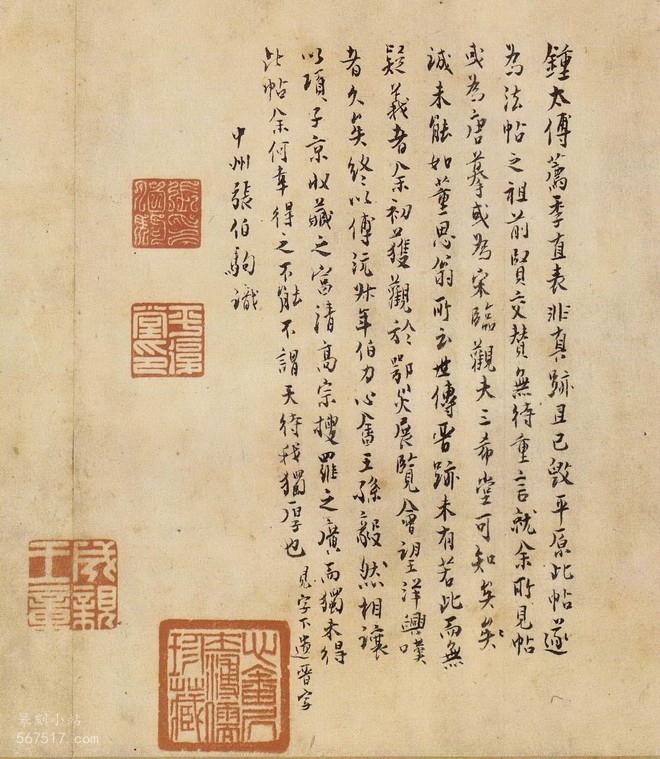 鍾太傅薦季直表非真跡且已毀平原此帖遂
為法帖之祖前賢交贊無待重言就余所見帖
或為唐摹或為宋臨觀夫三希堂可知矣矣
誠未能如董思翁所云世傳晉跡未有若此而無
疑義者余初獲觀於鄂災展覽會望洋興嘆
者久矣終以傅沅叔年伯力心畬王孫毅然相讓
以項子京收藏之富清高宗搜羅之廣而獨未得
此帖余何幸得之不能不謂天待我獨厚也 見字下遺晉字
中州張伯駒識
張印伯駒
平復堂印
成親王章
溥儒
珍藏
篆刻小站
567517.com